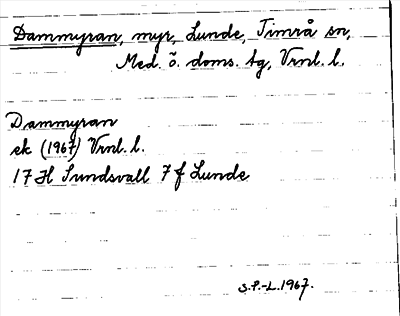 Dammyran, myr, Lunde, Timrå sn,
Med. ö. doms. tg, Vrnl. l.
Dammyran
ek (1967) Vrnl. l.
17H Sundsvall 7f Lunde
S.P.-L.1967.